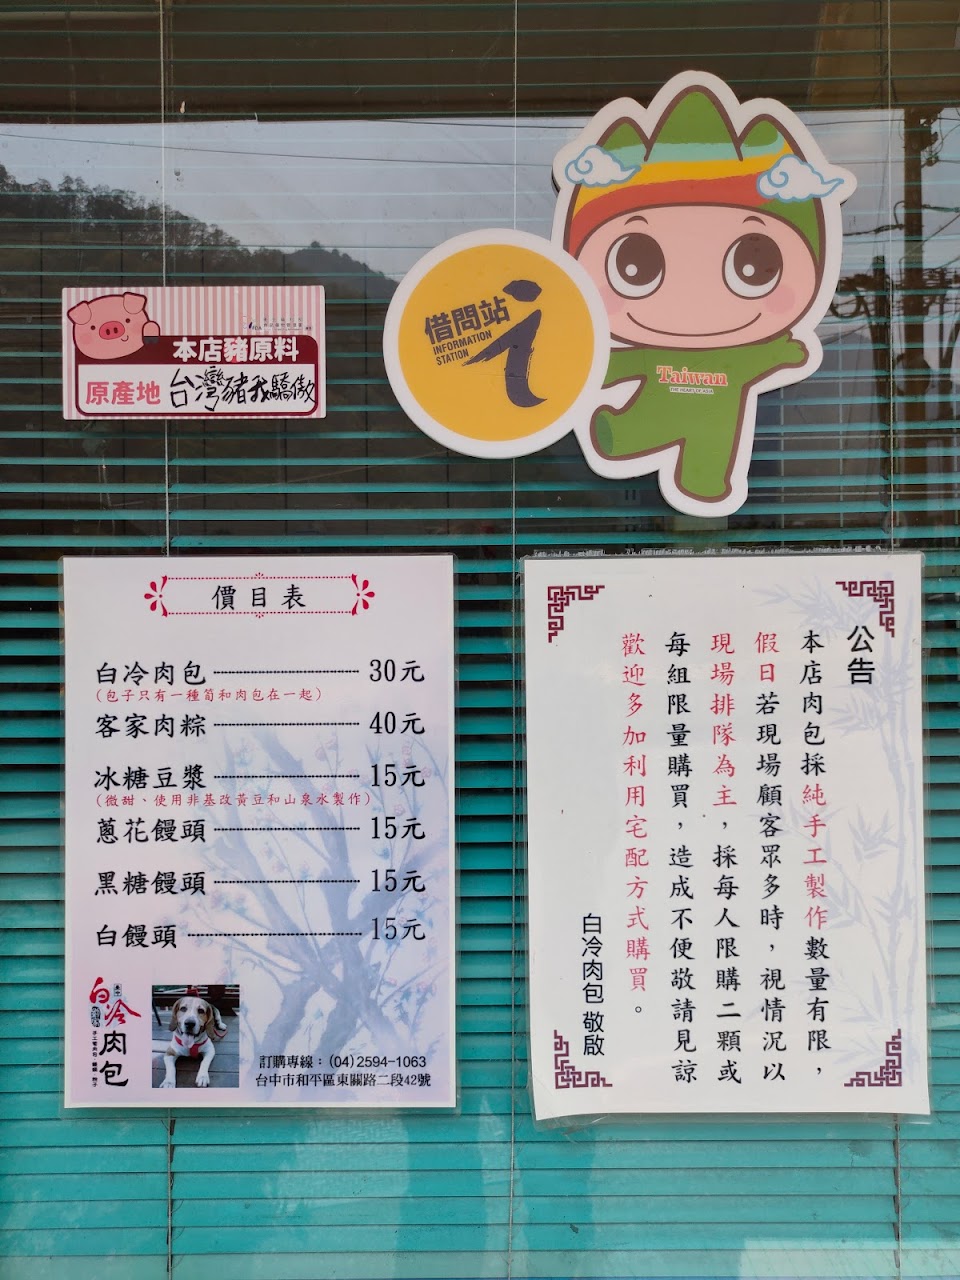 本店豬原料
原產地
台灣豬我驕傲
借問站
INFORMATION
STATION
i
Taiwan
THE HEART OF ASIA
價目表
白冷肉包 30元
(包子只有一種筍和肉包在一起)
客家肉粽 40元
冰糖豆漿 15元
(微甜、使用非基改黃豆和山泉水製作)
蔥花饅頭 15元
黑糖饅頭 15元
白饅頭 15元
白冷
肉包
訂購專線：(04)2594-1063
台中市和平區東關路二段42號
公告
本店肉包採純手工製作數量有限，
假日若現場顧客眾多時，視情況以
現場排隊為主，採每人限購二顆或
每組限量購買，造成不便敬請見諒
歡迎多加利用宅配方式購買。
白冷肉包 敬啟